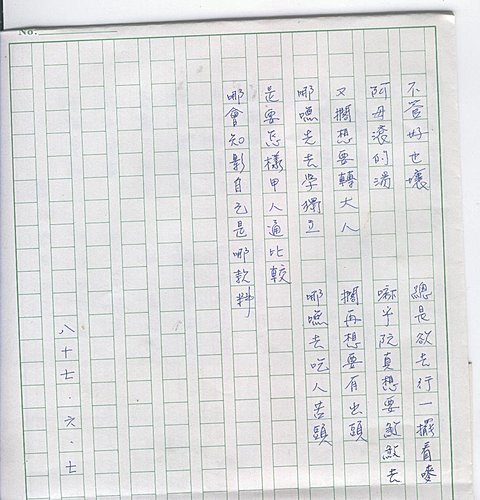 No.
不管好也壞　總是欲去行一擺看嘜
阿母滾的湯　嘛乎阮真想要𫙮𫙮去
又擱想要轉大人　擱再想要有出頭
哪嘸先去學獨立　哪嘸去吃人苦頭
是要怎樣甲人通比較
哪會知影自己是哪款料
八十七.六.七